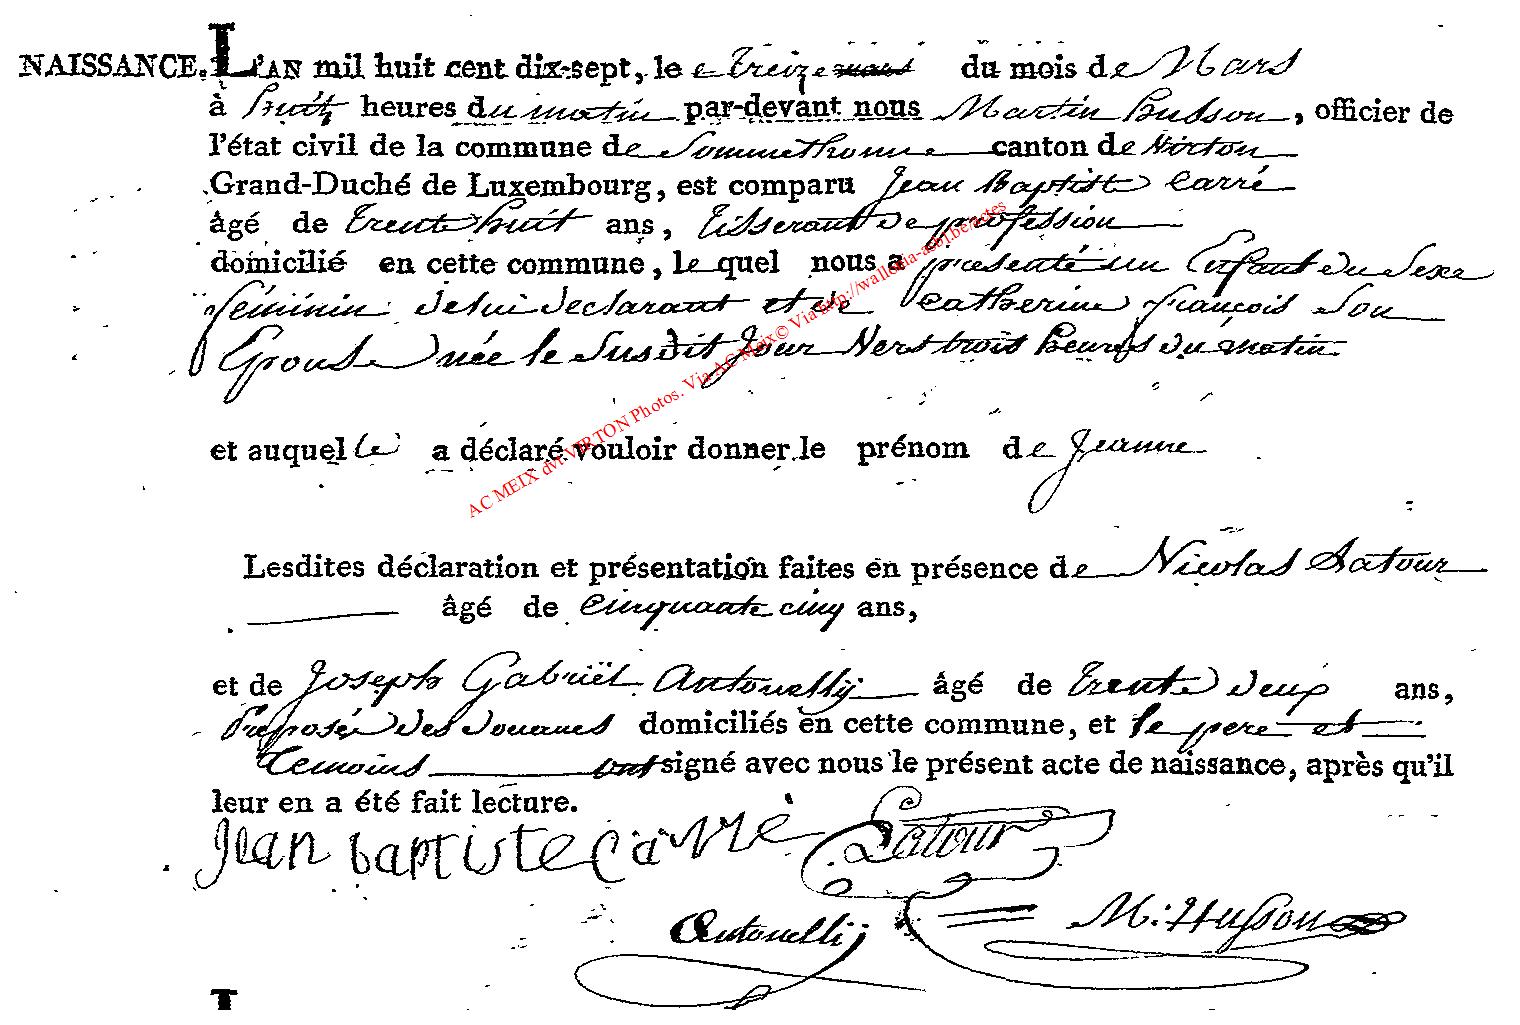 NAISSANCE. L'AN mil huit cent dix-sept, le treize mars du mois de Mars
à huit heures du matin par-devant nous Martin husson, officier de
l'état civil de la commune de Sommethonne canton de Virton
Grand-Duché de Luxembourg, est comparu Jean Baptiste Carré
âgé de trente huit ans, tisserant de profession
domicilié en cette commune, lequel nous a presenté un Enfant du Sexe
féminin de lui declarant et de Catherine françois Son
Epouse née le Susdit Jour Vers trois heures du matin
et auquelle a déclaré vouloir donner le prénom de Jeanne
Lesdites déclaration et présentation faites en présence de Nicolas Latour
âgé de Cinquante cinq ans,
et de Joseph Gabriël Antonellÿ âgé de trente deux ans,
Preposée des douanes domiciliés en cette commune, et le pere et
temoins ont signé avec nous le présent acte de naissance, après qu'il
leur en a été fait lecture.
Jean baptiste Carré Latour
Antonelli M: Husson
AC MEIX dvt VIRTON Photos. Via AC Meix© Via http://wallonia-asbl.be/actes